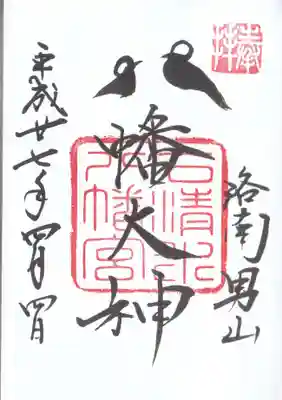 奉拝
洛南男山
幡大神
石清水八幡宮
平成廿七年四月四日